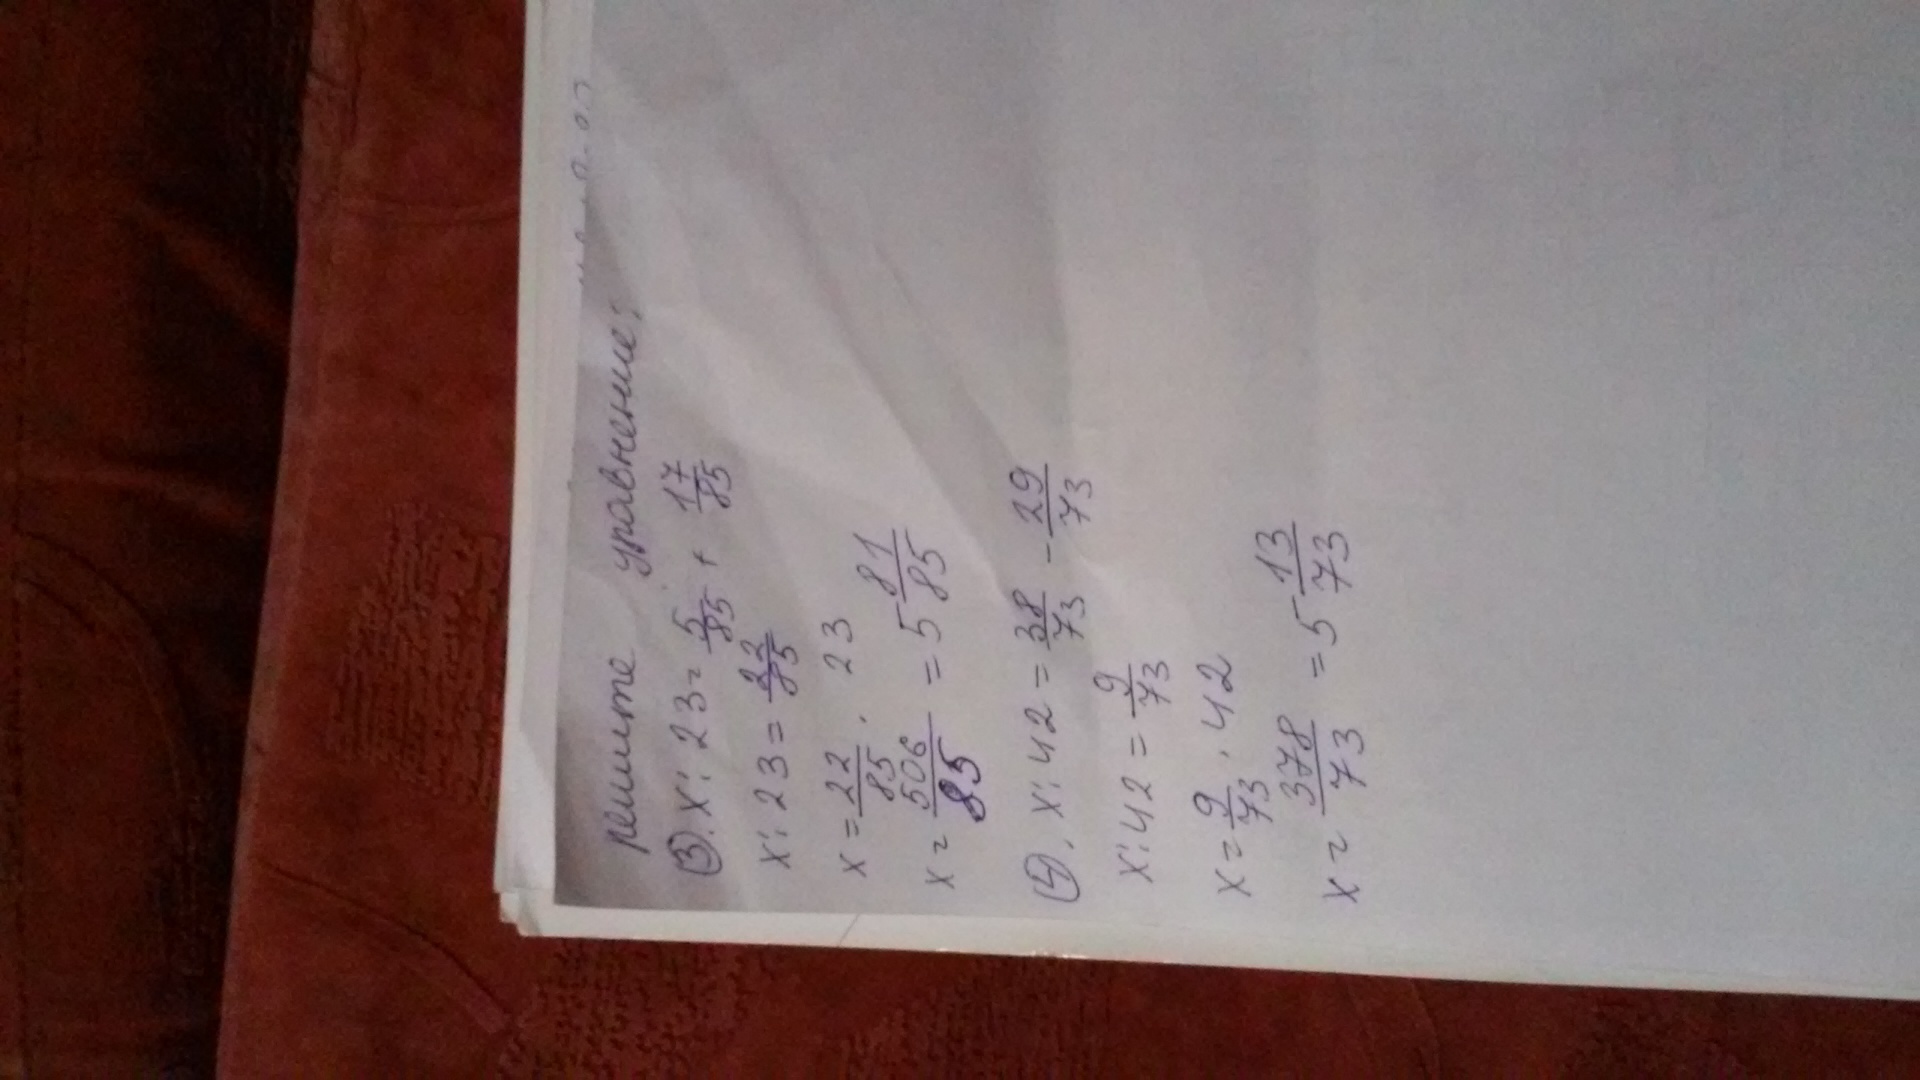 решите уравнение:
3. x : 23 = 5/85 + 17/85
x : 23 = 22/85
x = 22/85 · 23
x = 506/85 = 5 81/85
4. x : 42 = 38/73 - 29/73
x : 42 = 9/73
x = 9/73 · 42
x = 378/73 = 5 13/73